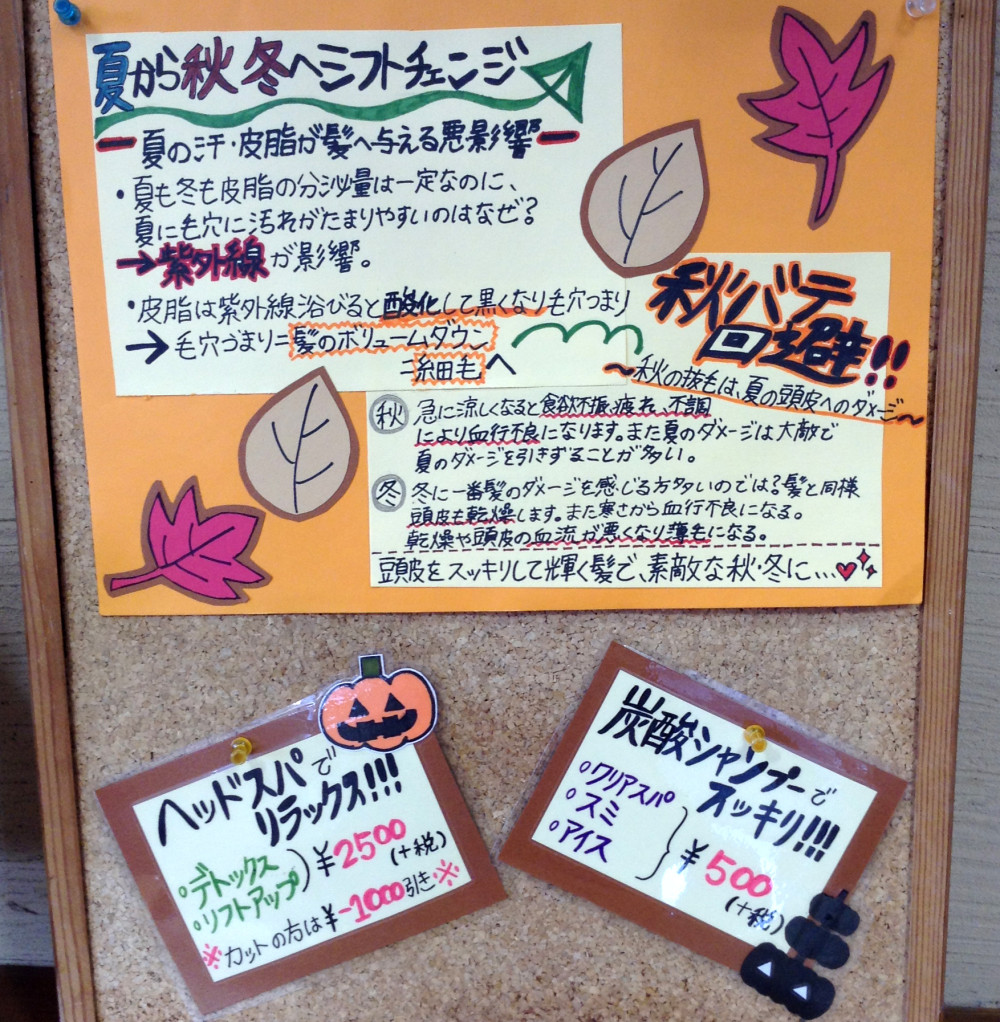 夏から秋冬へシフトチェンジ
夏の汗・皮脂が髪へ与える悪影響
・夏も冬も皮脂の分泌量は一定なのに、
夏に毛穴に汚れがたまりやすいのはなぜ?
→紫外線が影響。
・皮脂は紫外線浴びると酸化して黒くなり毛穴つまり
→毛穴づまり=髪のボリュームダウン
=細毛へ
秋バテ
回避!!
〜秋の抜毛は、夏の頭皮へのダメージ〜
秋 急に涼しくなると食欲不振、疲れ、不調
により血行不良になります。また夏のダメージは大敵で
夏のダメージを引きずることが多い。
冬 冬に一番髪のダメージを感じる方多いのでは?髪と同様
頭皮も乾燥します。また寒さから血行不良になる。
乾燥や頭皮の血流が悪くなり薄毛になる。
頭皮をスッキリして輝く髪で、素敵な秋・冬に…
ヘッドスパで
リラックス!!!
デトックス
リフトアップ
¥2500
(+税)
※カットの方は¥-1000引き※
炭酸シャンプーで
スッキリ!!!
クリアスパ
スミ
アイス
¥500
(+税)